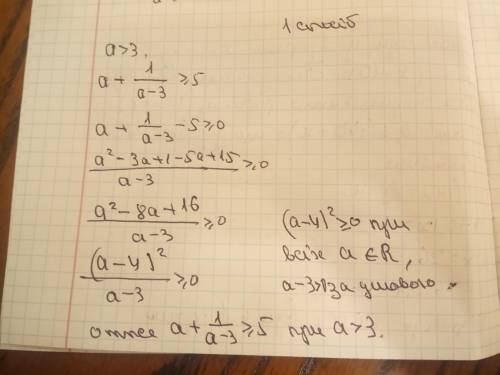 1 спосіб
a>3.
a + 1/(a-3) ≥5
a + 1/(a-3) -5≥0
(a²-3a+1-5a+15)/(a-3) ≥0
(a²-8a+16)/(a-3) ≥0 (a-4)²≥0 при
всіх a∈R,
(a-4)²/(a-3) ≥0 a-3> за умовою.
отже a+1/(a-3) ≥5 при a>3.